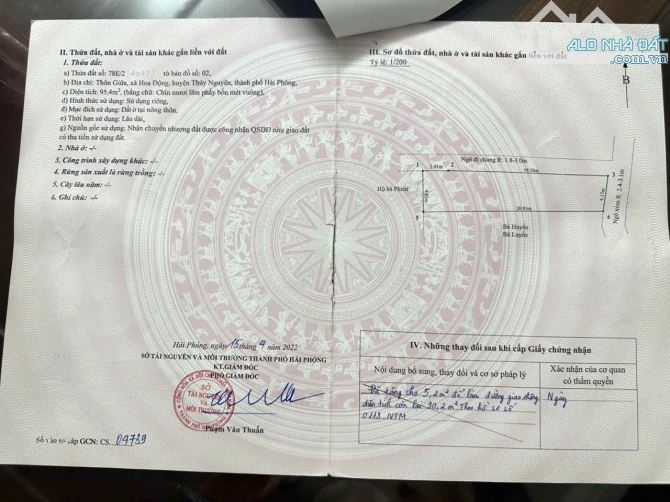 ALO NHÀ ĐẤT
.com.vn
II. Thửa đất, nhà ở và tài sản khác gắn liền với đất
1. Thửa đất:
a) Thửa đất số: 78E/2 tờ bản đồ số: 02,
b) Địa chỉ: Thôn Giữa, xã Hoa Động, huyện Thủy Nguyên, thành phố Hải Phòng,
c) Diện tích: 95,4m², (bằng chữ: Chín mươi lăm phẩy bốn mét vuông),
d) Hình thức sử dụng: Sử dụng riêng,
đ) Mục đích sử dụng: Đất ở tại nông thôn,
e) Thời hạn sử dụng: Lâu dài,
g) Nguồn gốc sử dụng: Nhận chuyển nhượng đất được công nhận QSDĐ như giao đất
có thu tiền sử dụng đất.
2. Nhà ở: -/-
3. Công trình xây dựng khác: -/-
4. Rừng sản xuất là rừng trồng: -/-
5. Cây lâu năm: -/-
6. Ghi chú: -/-
Hải Phòng, ngày 15 tháng 4 năm 2022
SỞ TÀI NGUYÊN VÀ MÔI TRƯỜNG THÀNH PHỐ HẢI PHÒNG
KT.GIÁM ĐỐC
PHÓ GIÁM ĐỐC
SỞ
TÀI NGUYÊN
VÀ
MÔI TRƯỜNG
Phạm Văn Thuấn
Số vào sổ cấp GCN: CS 09739
III. Sơ đồ thửa đất, nhà ở và tài sản khác gắn liền với đất
Tỷ lệ: 1/200
B
Ngõ đi chung R: 1.8-3.0m
1
2.92m
2
18.56m
3
Hộ bà Phiên
Ngõ xóm R: 2.4-3.1m
5
4
Bà Huyền
Bà Luyến
IV. Những thay đổi sau khi cấp Giấy chứng nhận
Nội dung bổ sung, thay đổi và cơ sở pháp lý
Xác nhận của cơ quan
có thẩm quyền
Đã tặng cho 5,2m² để làm đường giao thông, Ngày
diện tích còn lại 90,2m² Theo hồ sơ số
0118 NTM